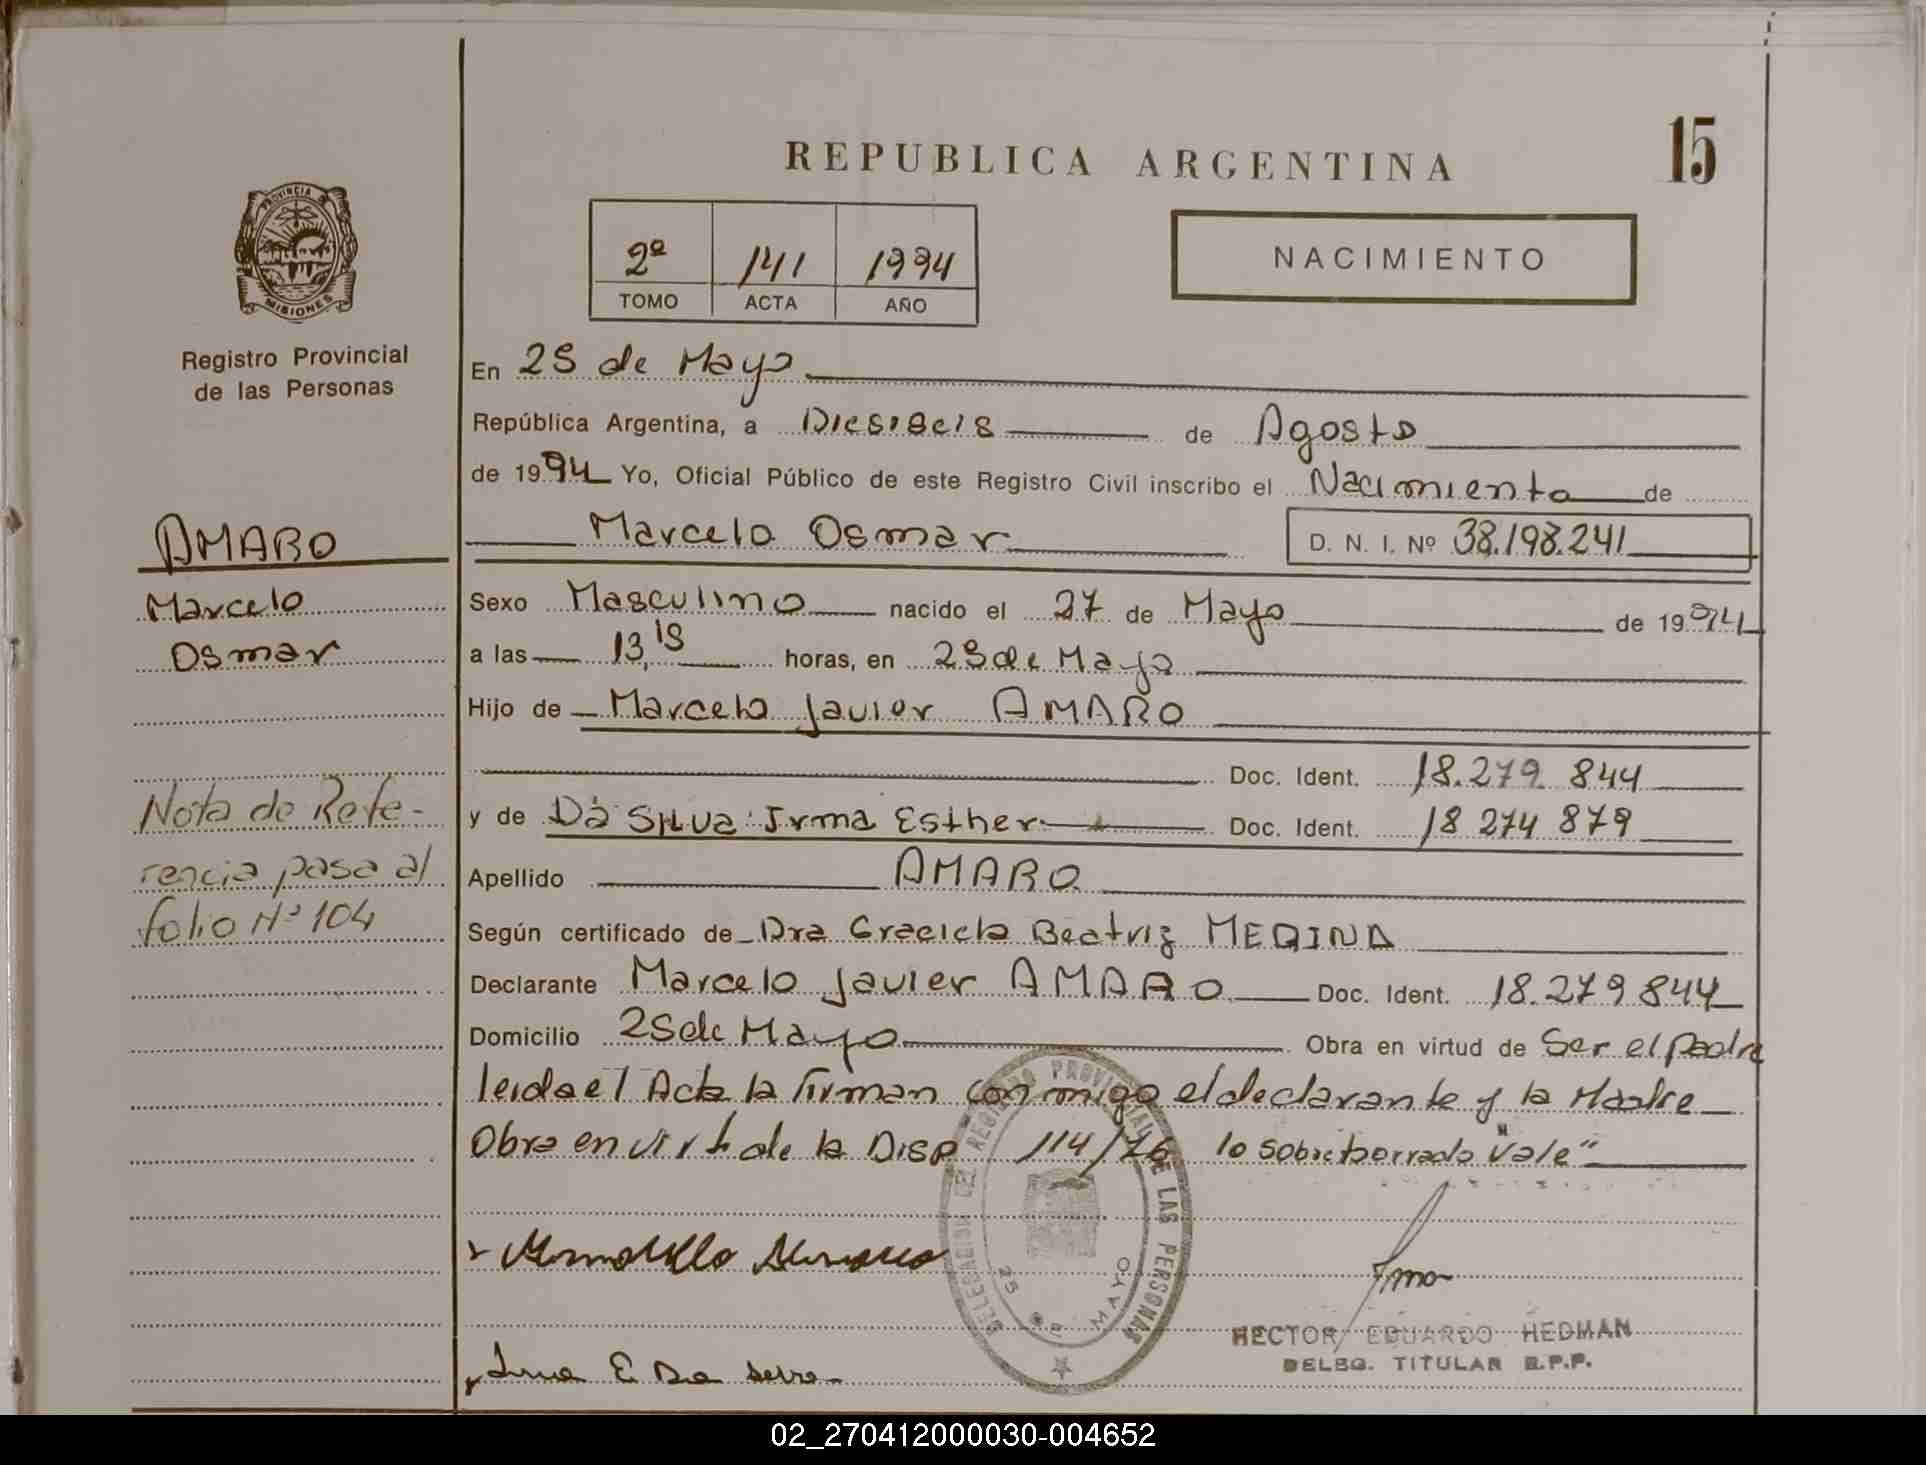 REPUBLICA ARGENTINA
15
PROVINCIA
MISIONES
Registro Provincial
de las Personas
2º 141 1994
TOMO ACTA AÑO
NACIMIENTO
En 25 de Mayo
República Argentina, a Diesiseis de Agosto
de 1994 Yo, Oficial Público de este Registro Civil inscribo el Nacimiento de
Marcelo Osmar D. N. I. Nº 38.198.241
AMARO
Marcelo
Osmar
Sexo Masculino nacido el 27 de Mayo de 1994
a las 13,15 horas, en 25 de Mayo
Hijo de Marcelo Javier AMARO
Doc. Ident. 18.279.844
y de Da Silva Irma Esther Doc. Ident. 18 274 879
Nota de Refe-
rencia pasa al
folio Nº 104
Apellido AMARO
Según certificado de Dra Graciela Beatriz MEDINA
Declarante Marcelo Javier AMARO Doc. Ident. 18.279 844
Domicilio 25 de Mayo Obra en virtud de Ser el Padre
leida el Acta la Firman con migo el declarante y la Madre
Obra en virt de la Disp 114/76 lo sobreborrado "Vale"
DELEGACION DEL REGISTRO PROVINCIAL DE LAS PERSONAS
25 DE MAYO
Irma E Da
HECTOR EDUARDO HEDMAN
DELEG. TITULAR R.P.P.
02_270412000030-004652